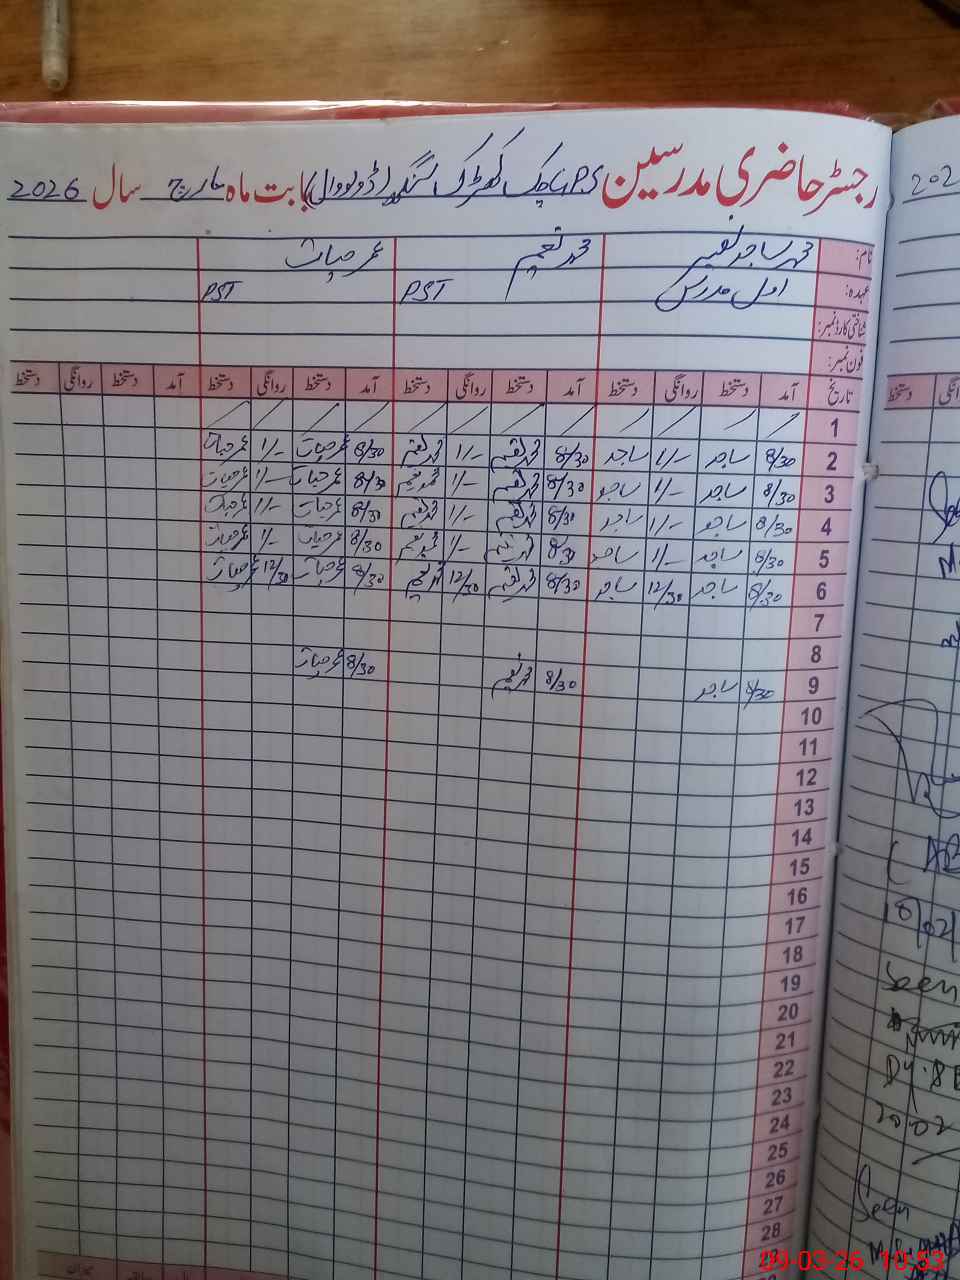 رجسٹر حاضری مدرسین GPS چک کھوڑک سنگھڑ (ڈونووال) بابت ماہ مارچ سال 2026
نام: محمد ساجد نصیر محمد نعیم عمر حیات
عہدہ: اول مدرس PST PST
شناختی کارڈ نمبر:
فون نمبر:
تاریخ آمد دستخط روانگی دستخط آمد دستخط روانگی دستخط آمد دستخط روانگی دستخط آمد دستخط روانگی دستخط
1
2 8/30 ساجد 1/- ساجد 8/30 محمد نعیم 1/- محمد نعیم 8/30 عمر حیات 1/- عمر حیات
3 8/30 ساجد 1/- ساجد 8/30 محمد نعیم 1/- محمد نعیم 8/30 عمر حیات 1/- عمر حیات
4 8/30 ساجد 1/- ساجد 8/30 محمد نعیم 1/- محمد نعیم 8/30 عمر حیات 1/- عمر حیات
5 8/30 ساجد 1/- ساجد 8/30 محمد نعیم 1/- محمد نعیم 8/30 عمر حیات 1/- عمر حیات
6 8/30 ساجد 12/30 ساجد 8/30 محمد نعیم 12/30 محمد نعیم 8/30 عمر حیات 12/30 عمر حیات
7
8
9 8/30 ساجد 8/30 محمد نعیم 8/30 عمر حیات
10
11
12
13
14
15
16
17
18
19
20
21
22
23
24
25
26
27
28
202
دستخط
18/02/
Seen
Dy.
20.02
Seen
09-03-26 10:53